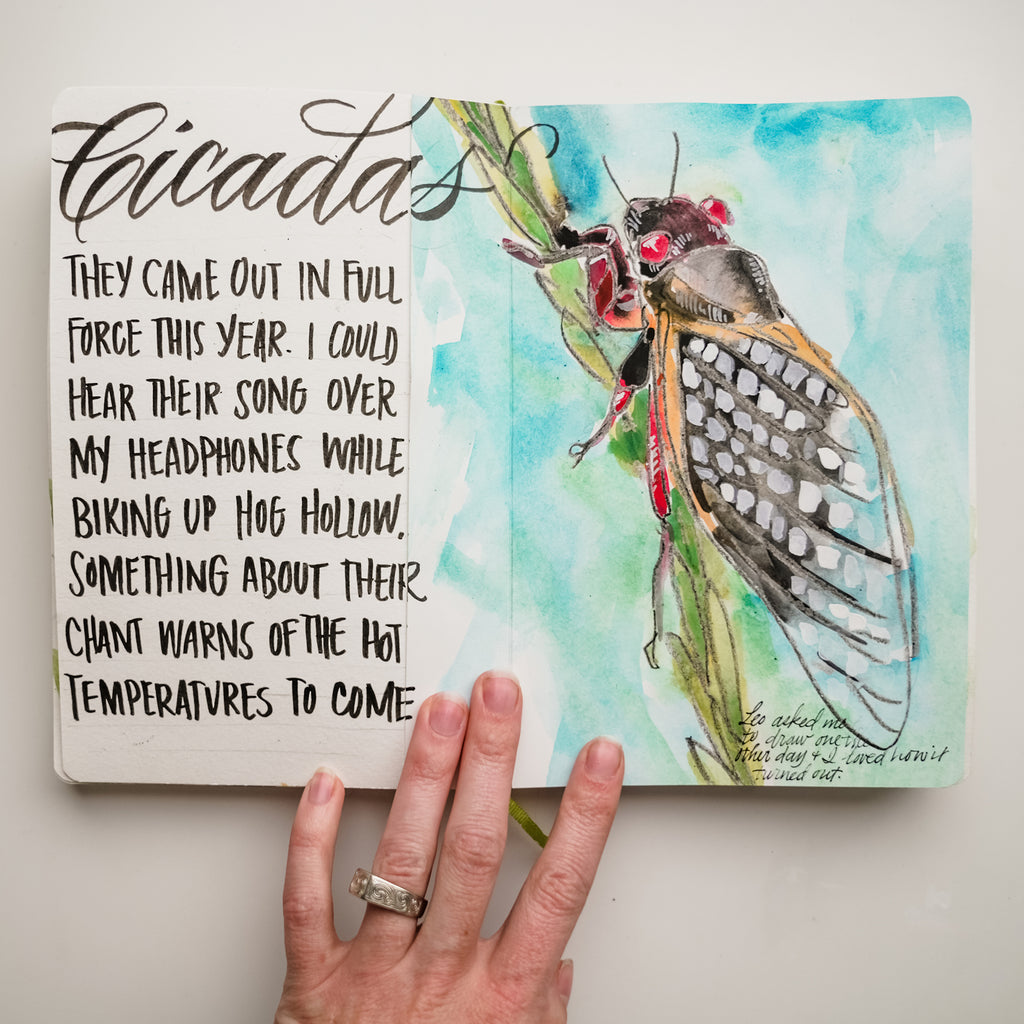 Cicadas
THEY CAME OUT IN FULL
FORCE THIS YEAR. I COULD
HEAR THEIR SONG OVER
MY HEADPHONES WHILE
BIKING UP HOG HOLLOW.
SOMETHING ABOUT THEIR
CHANT WARNS OF THE HOT
TEMPERATURES TO COME
Leo asked me
to draw one the
other day & I loved how it
turned out.